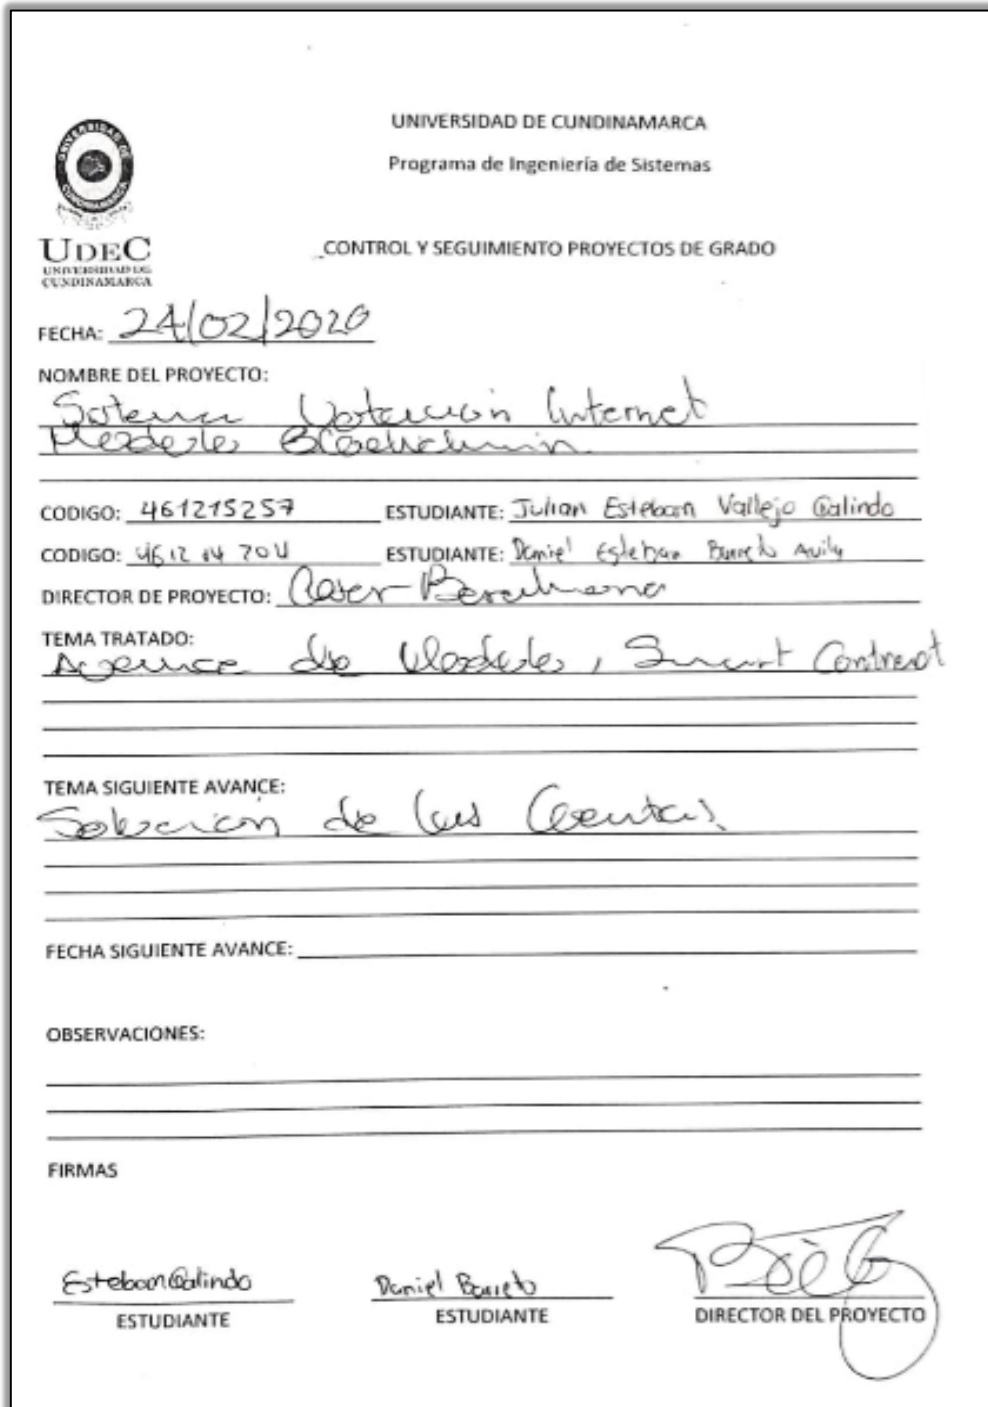 UNIVERSIDAD DE CUNDINAMARCA
Programa de Ingeniería de Sistemas
UDEC
UNIVERSIDAD DE
CUNDINAMARCA
CONTROL Y SEGUIMIENTO PROYECTOS DE GRADO
FECHA: 24/02/2020
NOMBRE DEL PROYECTO:
Sistema Votación Internet
Modelo Blockchain
CODIGO: 461215257 ESTUDIANTE: Julian Esteban Vallejo Galindo
CODIGO: 461214704 ESTUDIANTE: Daniel Esteban Barreto Avila
DIRECTOR DE PROYECTO: Cesar
TEMA TRATADO:
Avance de Modelo, Smart Contract
TEMA SIGUIENTE AVANCE:
de las
FECHA SIGUIENTE AVANCE:
OBSERVACIONES:
FIRMAS
Esteban Galindo Daniel Barreto
ESTUDIANTE ESTUDIANTE DIRECTOR DEL PROYECTO